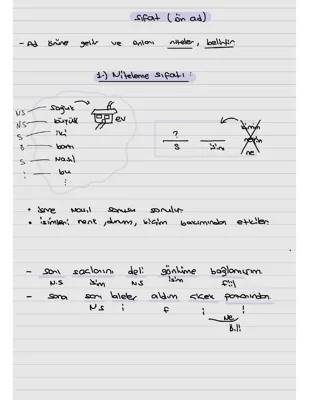 Sıfat (ön ad)
- Ad önüne gelir ve onları niteler, belirtir
1-) Niteleme sıfatı:
N.S — soğuk
N.S — büyük
S — iki
B — bazı
S — Nasıl
⋮ — bu
⋮
ev
?
S isim
kimin
neyin
ne
• isme Nasıl sorusu sorulur
• isimleri renk, durum, biçim bakımından etkiler
- sarı saçlarını deli gönlüme bağlamışım
N.S isim N.S isim fiil
- sana son biletler aldım çiçek pazarından
N S i f i i
Ne
B.li